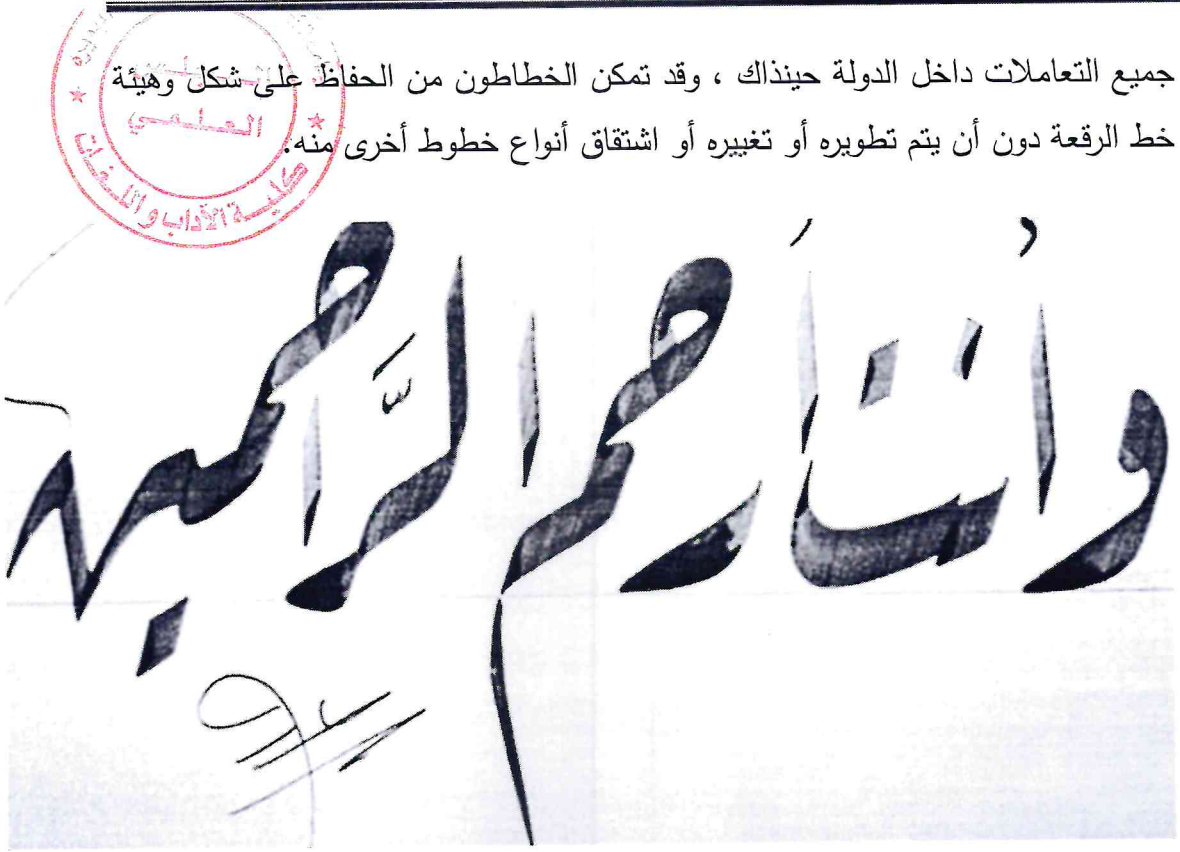 جميع التعاملات داخل الدولة حينذاك ، وقد تمكن الخطاطون من الحفاظ على شكل وهيئة
خط الرقعة دون أن يتم تطويره أو تغييره أو اشتقاق أنواع خطوط أخرى منه.
العلمي
كلية الآداب واللغات
وأُنتَ أَرحم الرَّاحمين